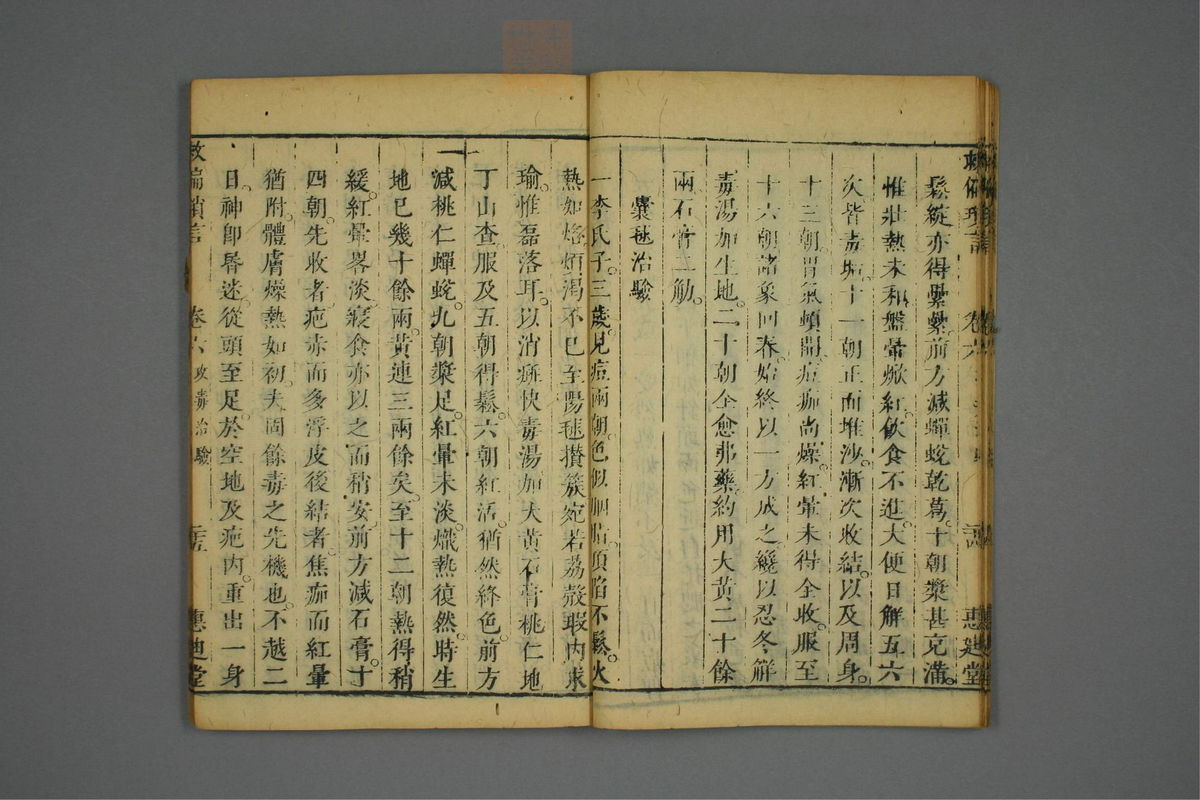 鬆綻亦得纍纍前方減蟬蛻乾葛十朝漿甚充滿
惟壯熱未和盤暈焮紅飲食不進大便日解五六
次皆毒垢十一朝正面堆沙漸次收結以及周身
十三朝胃氣頓開痘痂尚燥紅暈未得全收服至
十六朝諸象回春始終以一方成之纔以忍冬解
毒湯加生地二十朝全愈弗藥約用大黃二十餘
兩石膏二觔
囊毬治驗
一李氏子三歲見痘兩朝色似胭脂頂陷不鬆火
熱如烙煩渴不已至陽毬攢簇宛若荔殼瑕內求
瑜惟磊落耳以消瘀快毒湯加大黃石膏桃仁地
丁山查服及五朝得鬆六朝紅活猶然終色前方
減桃仁蟬蛻九朝漿足紅暈未淡熾熱復然時生
地已幾十餘兩黃連三兩餘矣至十二朝熱得稍
緩紅暈畧淡寢食亦以之而稍安前方減石膏十
四朝先收者疤赤而多浮皮後結者焦痂而紅暈
猶附體膚燥熱如初夫固餘毒之先機也不越二
日神卽昏迷從頭至足於空地及疤內重出一身
救偏瑣言
卷六
攻毒治驗
惠迪堂